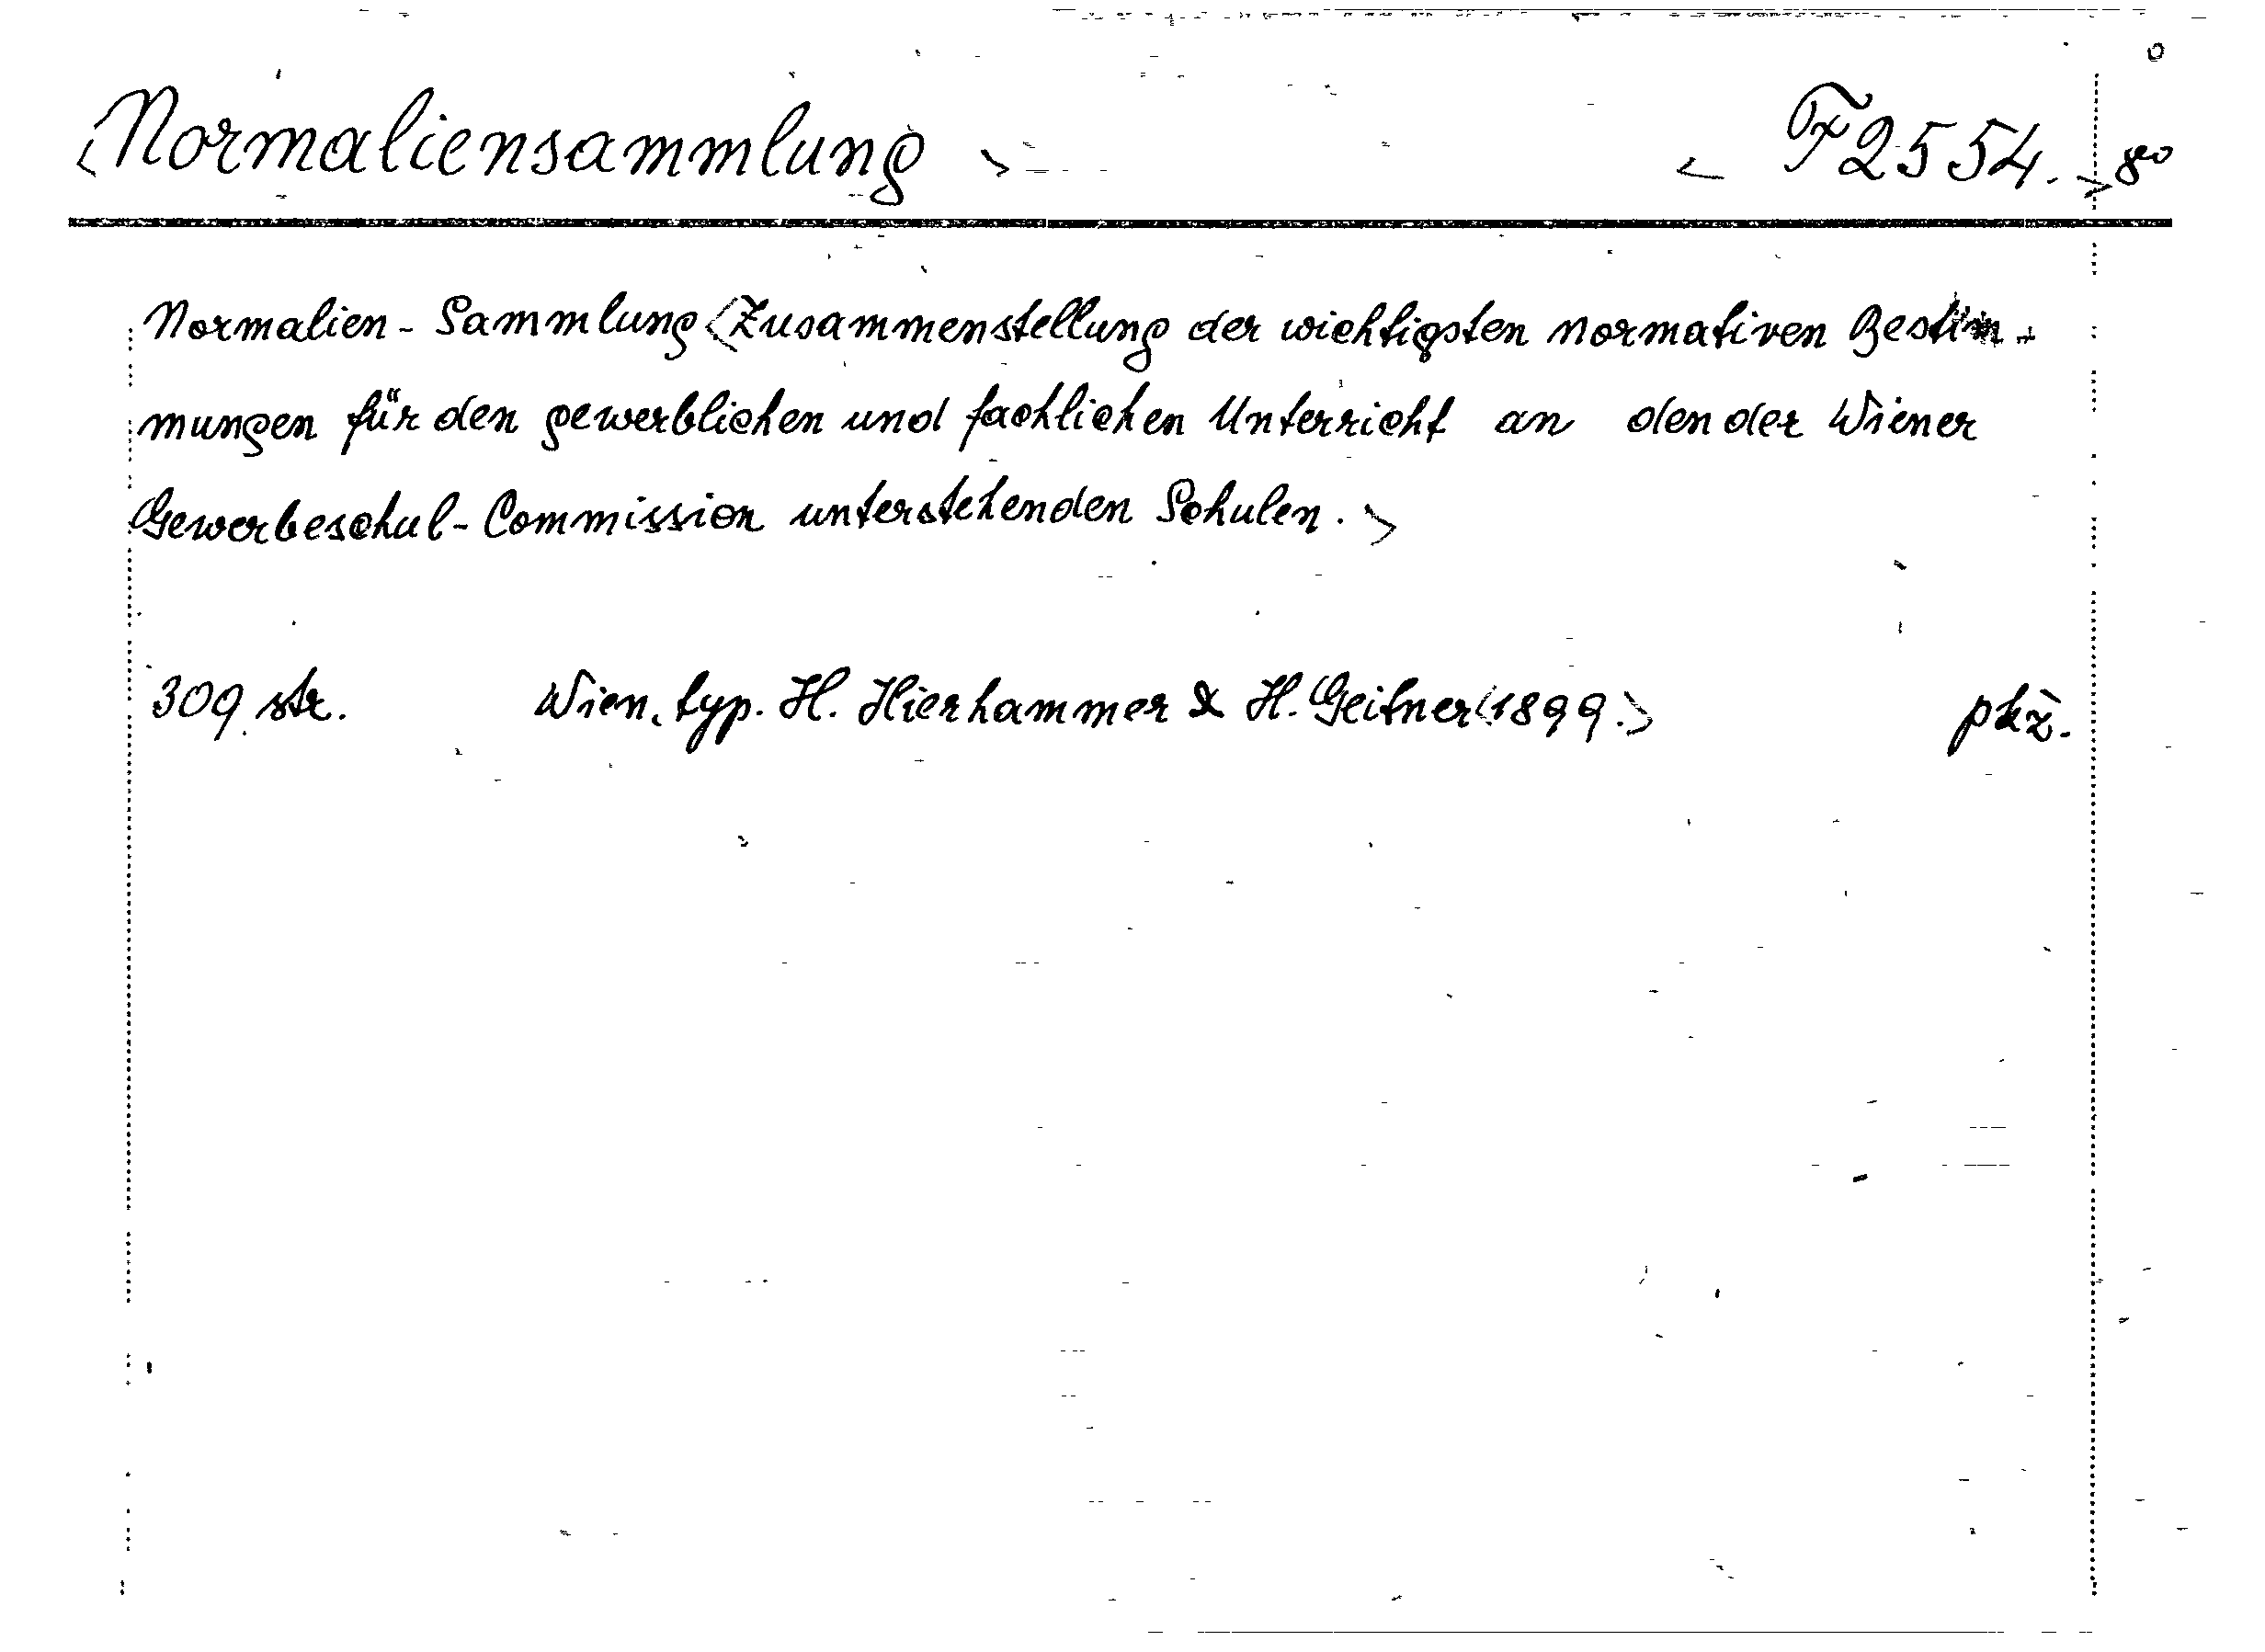 <Normaliensammlung> <F 2554.> 8°
Normalien-Sammlung <Zusammenstellung der wichtigsten normativen Bestim-
mungen für den gewerblichen und fachlichen Unterricht an den der Wiener
Gewerbeschul-Commission unterstehenden Schulen.>
309 str. Wien, typ. H. Hierhammer & H. Geitner <1899.> pkž.